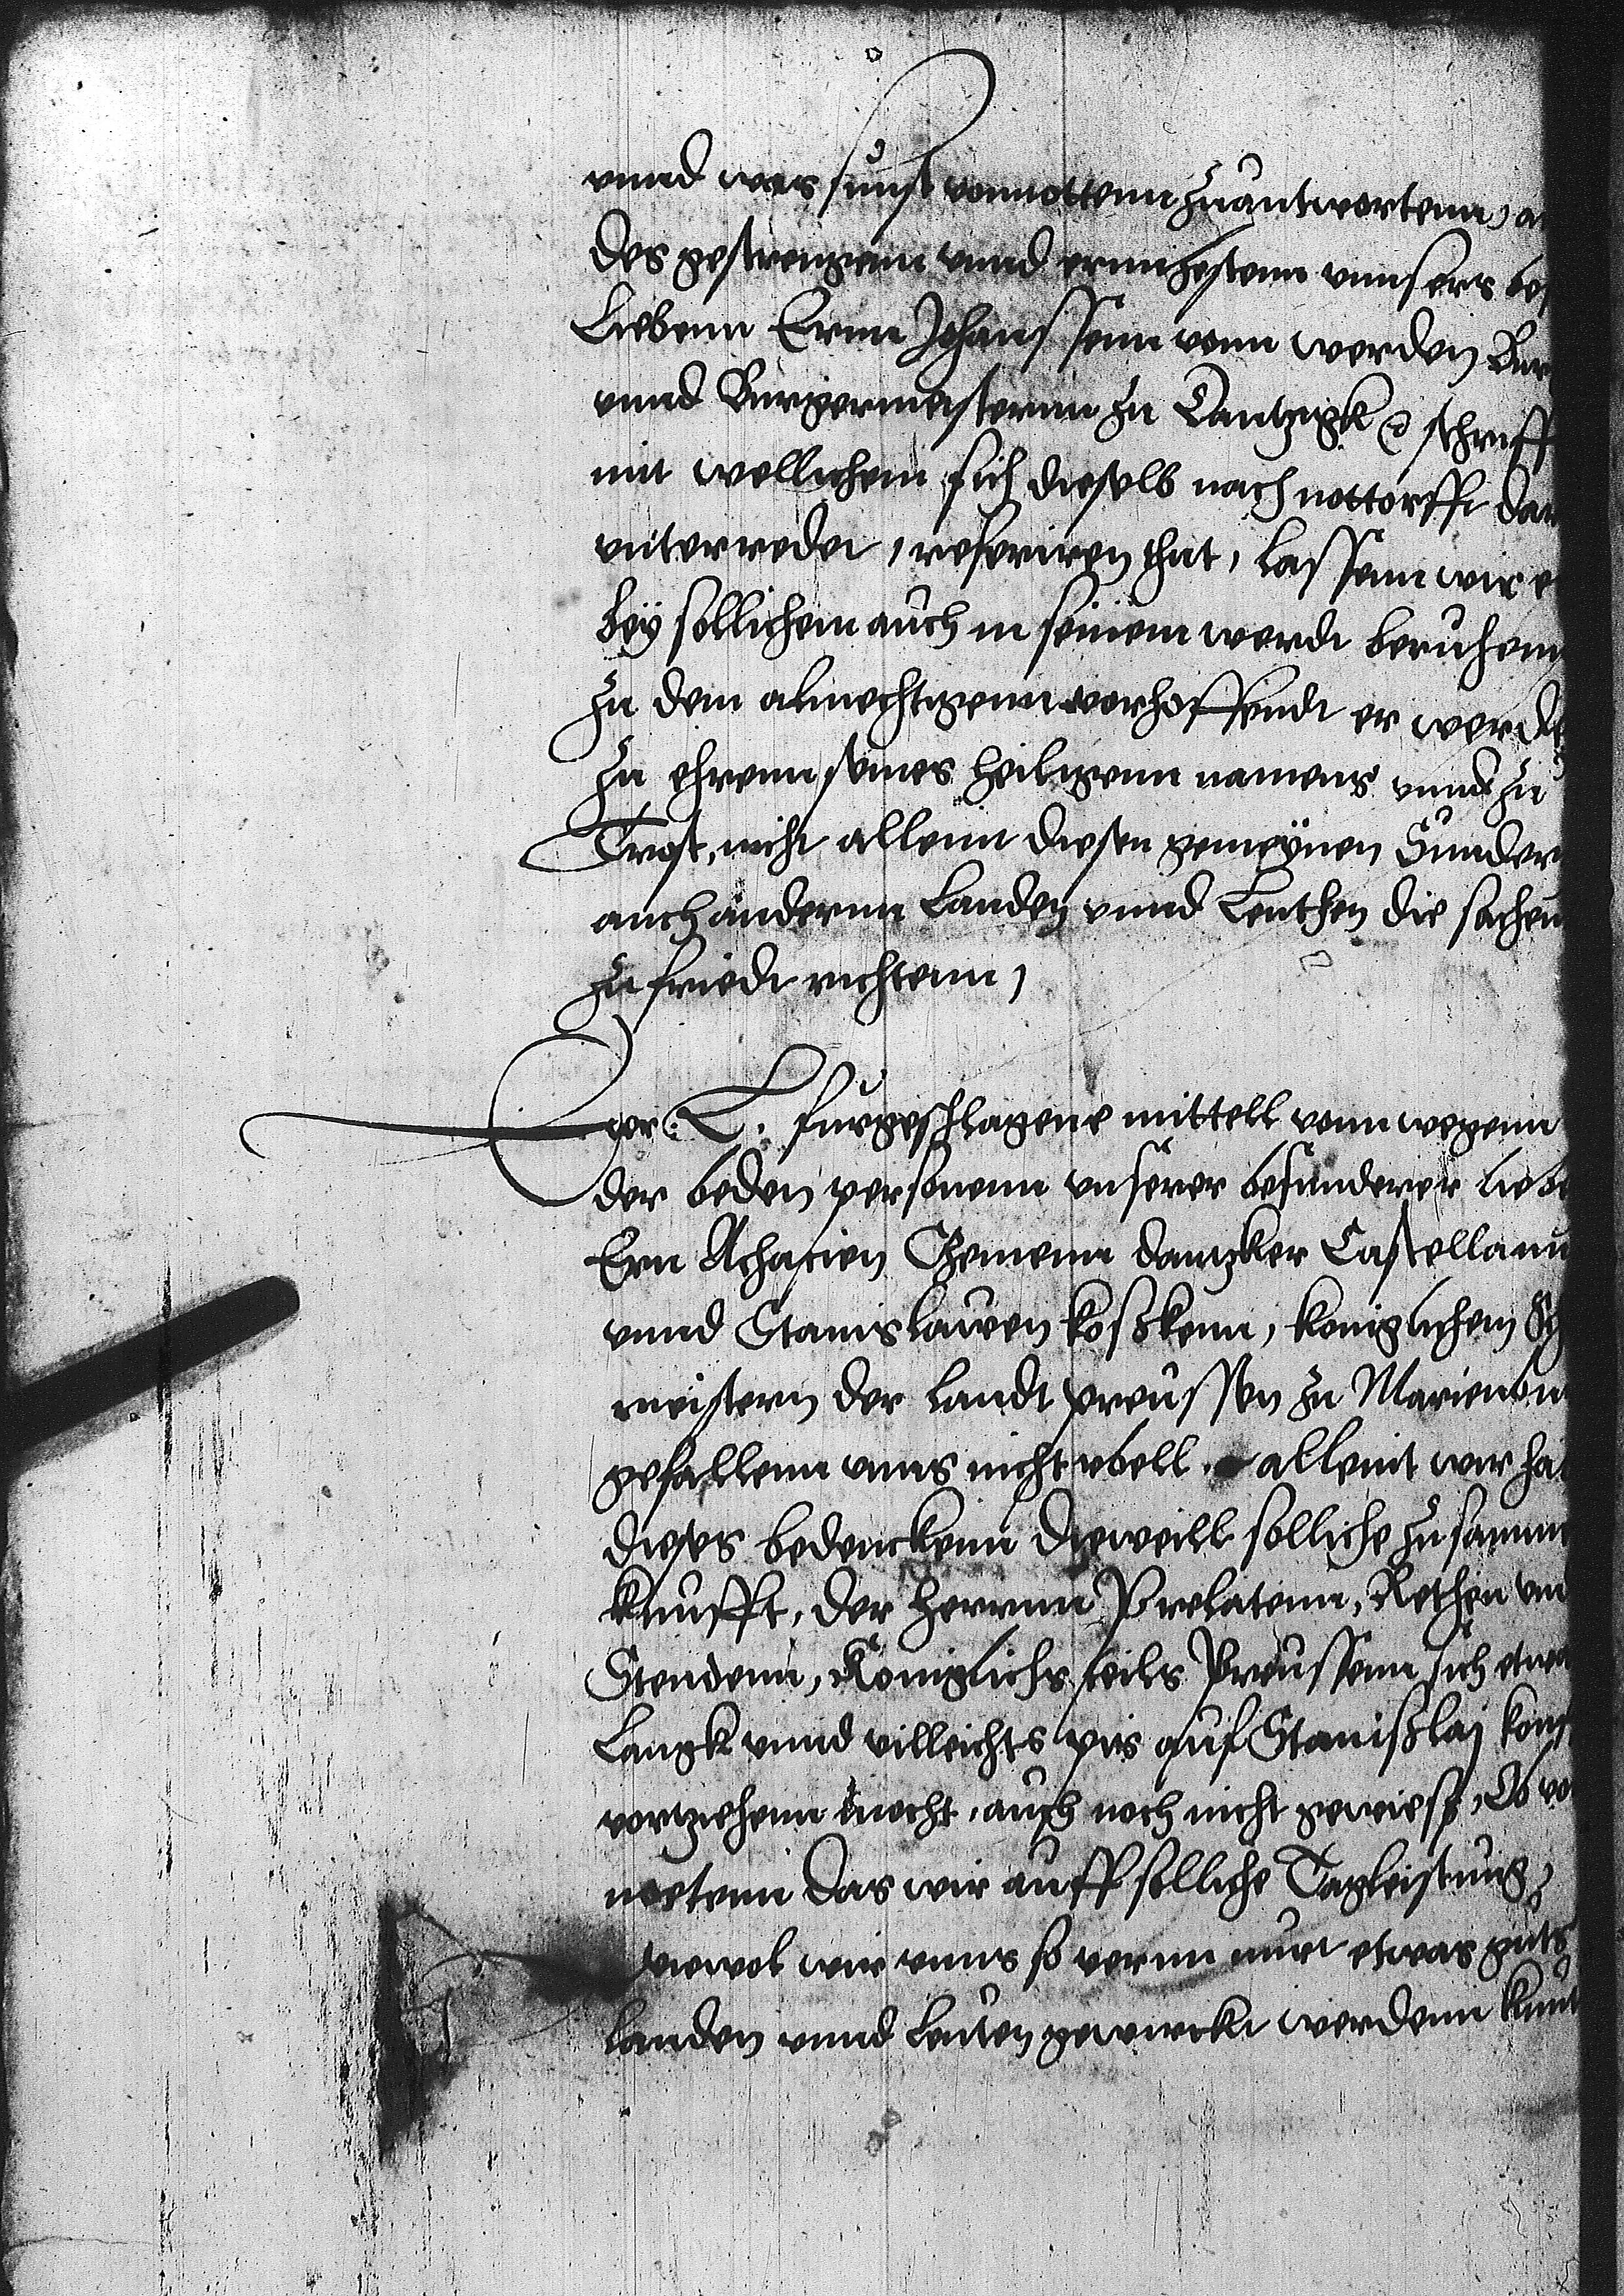 vnnd was sunst vonnottenn zuantwortenn, a
des gestrengenn vnnd ernuhestenn vnnsers bes
Liebenn Ernn Johanssenn vonn werden Bur
vnnd Burgermeisternn zu Dantzigk schrifft
mit wellichem sich dieselb nach nottorfft dar
vnterredet, referiren that, Lassenn wir e
bey sollichem auch in seinem werdt beruhenn
zu dem almechtigenn vorhoffendt er werde
zu ehrenn seines heiligenn namens vnnd zu
Trost, nicht allein diesen gemeynen Sunder
auch anderenn Landen vnnd Leuthen die sachen
zu friedt richtenn,
Ewr. L. furgeschlagene mittell vonn wegenn
der beden personenn vnserer besunderer liebe
Ern Achacien Czemenn dantzker Castellann
vnnd Stanislawen kostkenn, koniglichem Sch
meistern der Landt preussen zu Marienbu
gefallenn vnns nicht vbell. alleint wir ha
dieses bedenckenn dieweill solliche zusamme
kunfft, der herrnn Prelatenn, Rethen vnd
Stendenn, Koniglichs teils Preussenn sich etwa
Langk vnnd villeichts pis auf Stanißlaj kom
vortziehenn mocht, auch noch nicht gewieß, Ob vo
noetenn das wir auff solliche Tagleistung,
wiewol wir vnns so vernn nur etwas guts
landen vnnd leuten gewirckt werdenn kunt